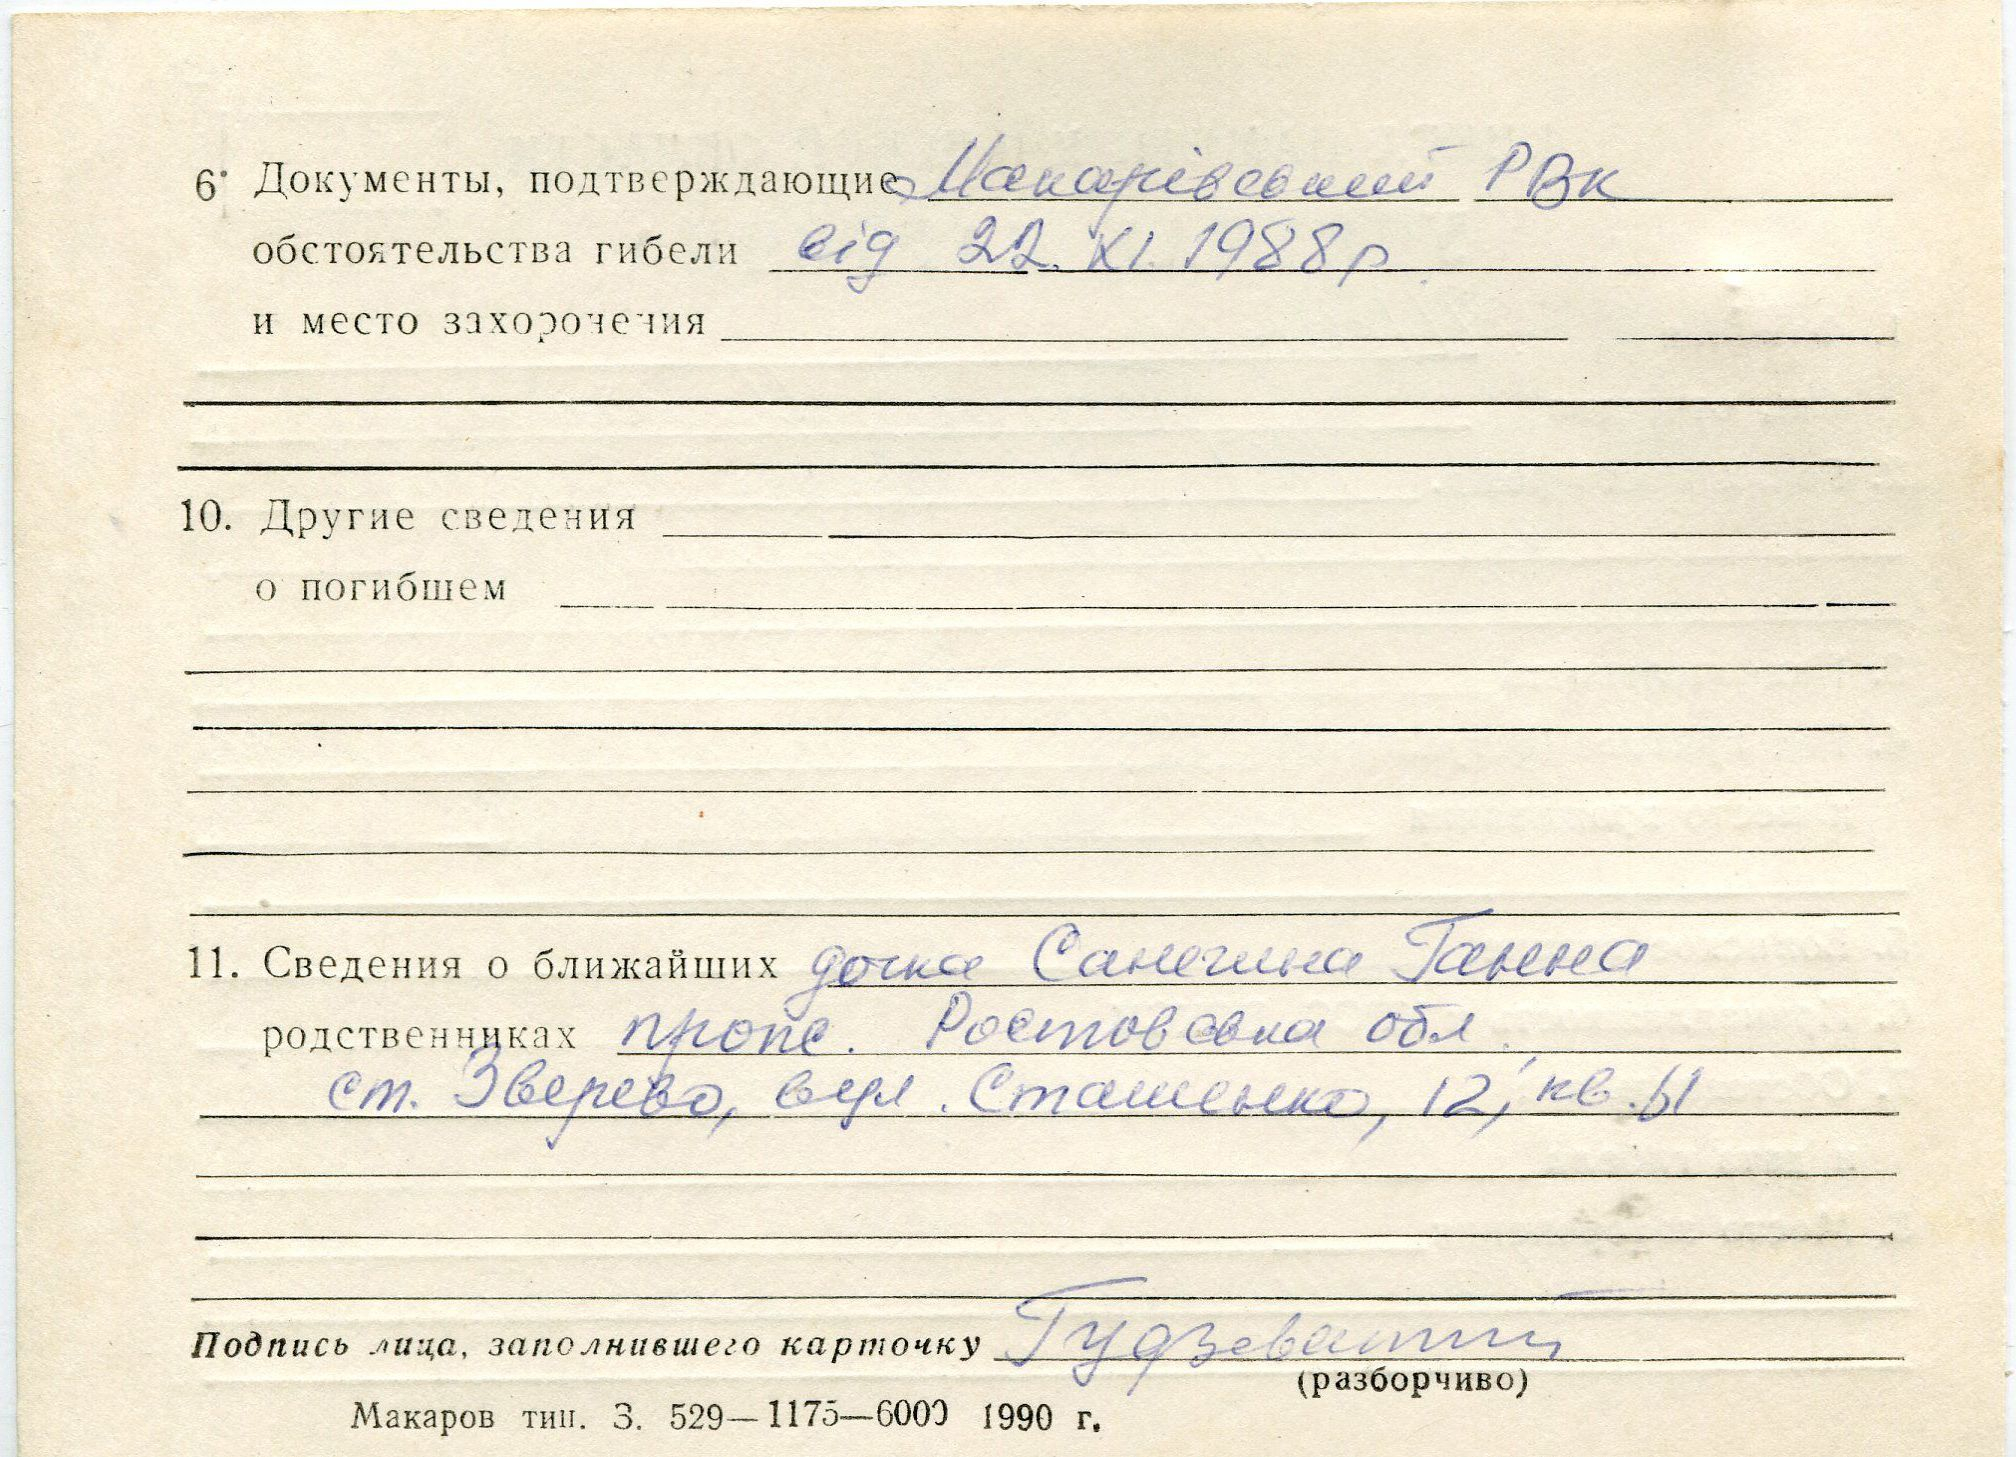 6. Документы, подтверждающие Макарівський РВК
обстоятельства гибели від 22. XI. 1988 р.
и место захоронения
10. Другие сведения
о погибшем
11. Сведения о ближайших дочка Санечина Ганна
родственниках прож. Ростовська обл.
ст. Зверево, вул. Сташенко, 12, кв. 61
Подпись лица, заполнившего карточку
(разборчиво)
Макаров тип. З. 529—1175—6000 1990 г.